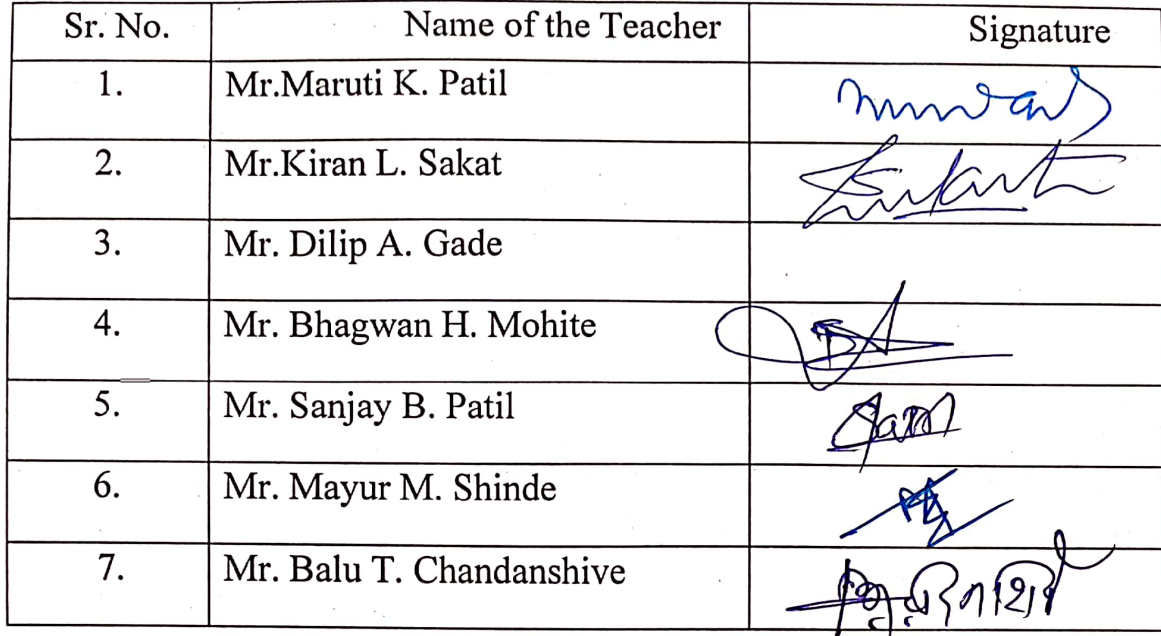 Sr. No. Name of the Teacher Signature
1. Mr.Maruti K. Patil
2. Mr.Kiran L. Sakat
3. Mr. Dilip A. Gade
4. Mr. Bhagwan H. Mohite
5. Mr. Sanjay B. Patil
6. Mr. Mayur M. Shinde
7. Mr. Balu T. Chandanshive